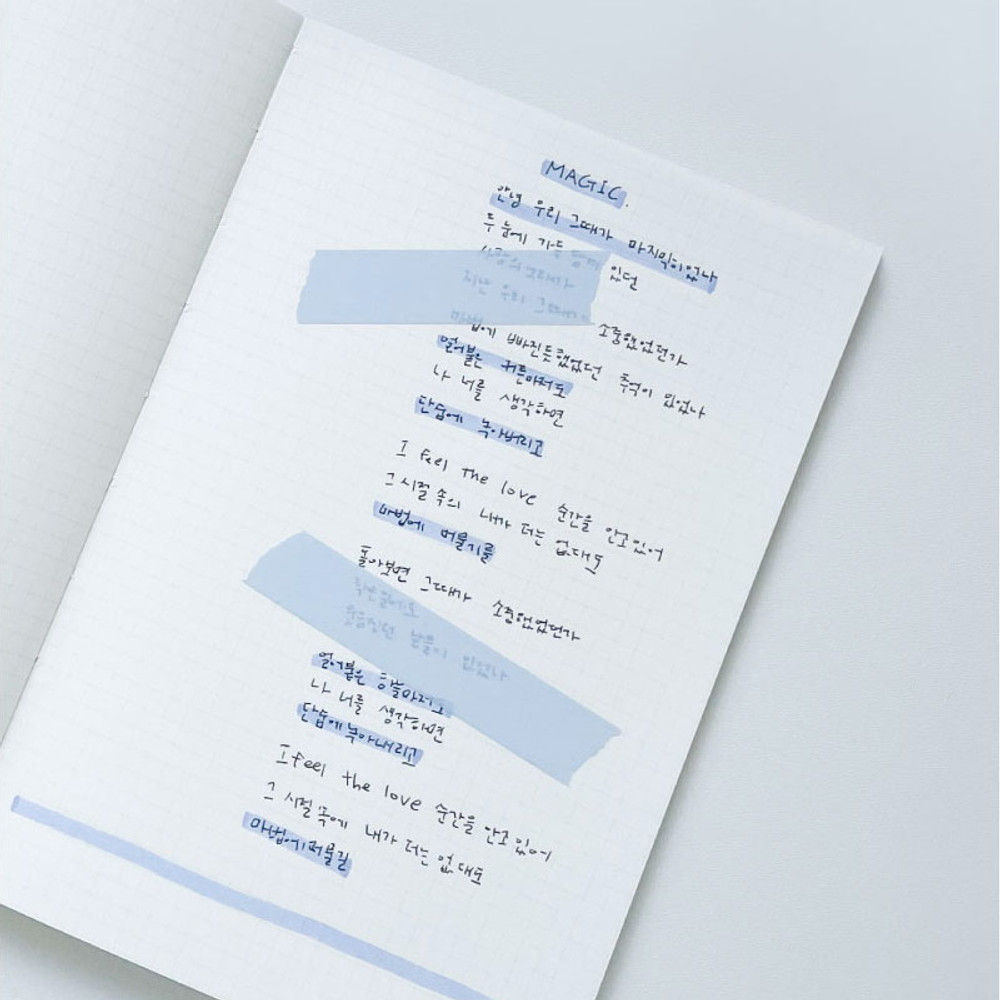 MAGIC.
안녕 우리 그때가 마지막이었나
두 눈에 가득 있던
사랑의 노래가
지난 우리 그때가 소중했었던가
마법에 빠진듯했었던 추억이 있었나
얼어붙은 겨울마저도
나 너를 생각하면
단숨에 녹아버리고
I feel the love 순간을 안고있어
그 시절 속의 내가 더는 없대도
마법에 머물기를
돌아보면 그때가 소중했었던가
작은일에도
웃음짓던 날들이 있었나
얼어붙은 하늘마저도
나 너를 생각하면
단숨에 녹아내리고
I feel the love 순간을 안고 있어
그 시절 속에 내가 더는 없대도
마법에 머물길